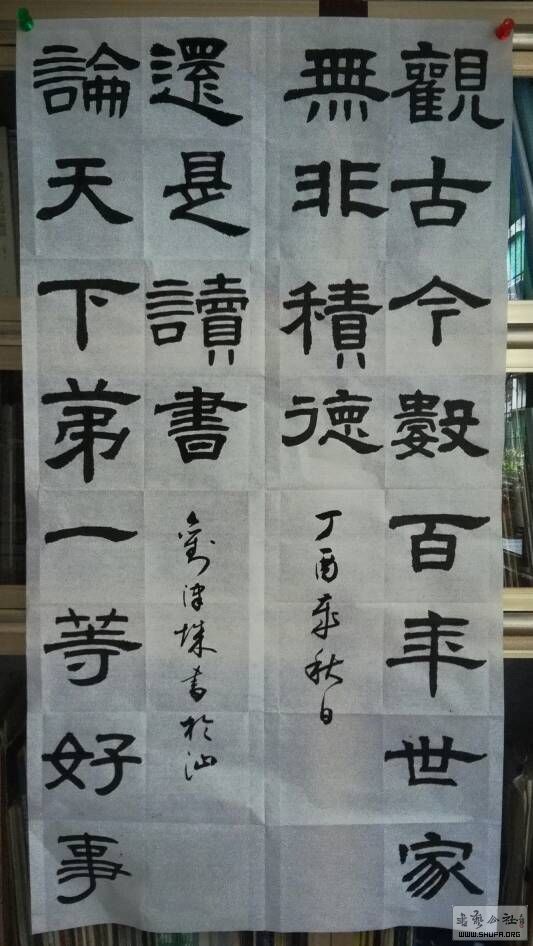 觀古今數百年世家
無非積德
丁酉年秋日
論天下弟一等好事
還是讀書
劉津城書於汕
书艺公社
WWW.SHUFA.ORG